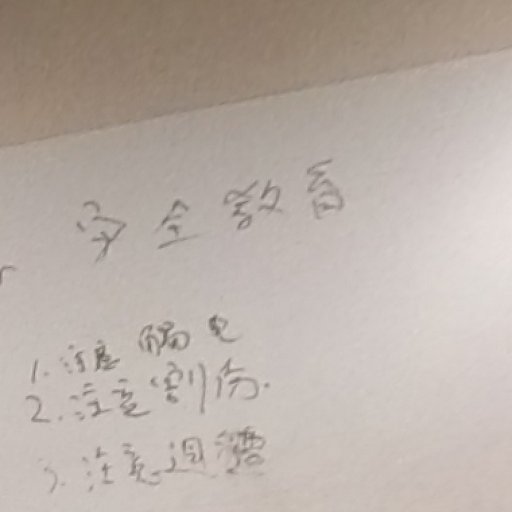 安全教育
1. 注意觸电
2. 注意割伤.
3. 注意